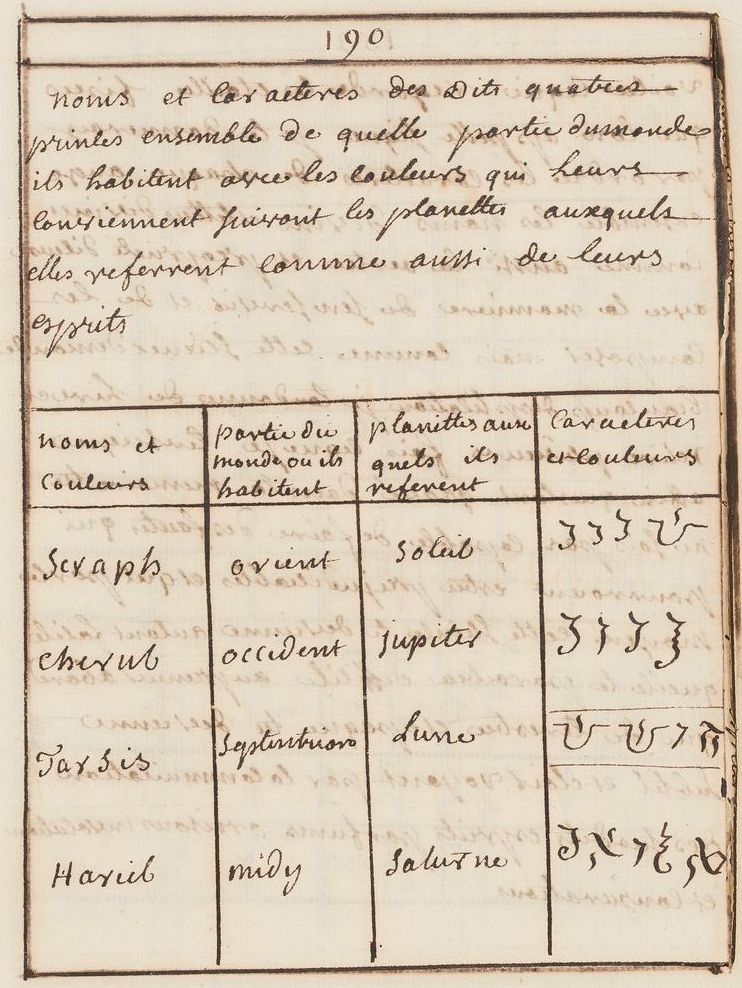 190
noms et Caracteres des Dits quatres
princes ensemble de quelle partie dumonde
ils habitent avec les couleurs qui heurs
Conviennent suivant les planettes auxquels
elles referrent comme aussi de leurs
esprits
noms et couleurs
partie du monde ou ils habitent
planettes aux quels ils referent
Caracteres et couleurs
Seraph orient Soleil
Cherub occident Jupiter
Tarsis Septentrion Lune
Hariel midy Saturne